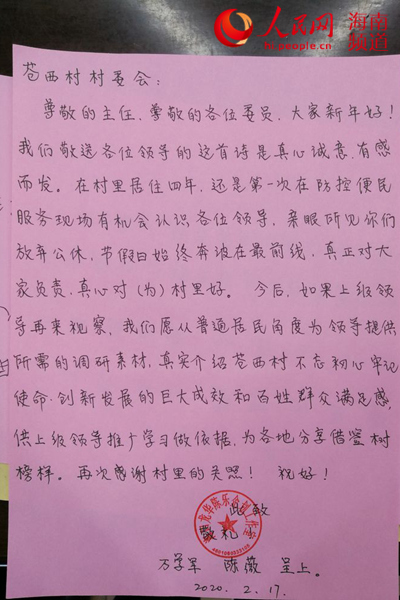 人民网 海南频道
hi.people.com.cn
苍西村村委会：
尊敬的主任，尊敬的各位委员，大家新年好！
我们敬送各位领导的这首诗是真心诚意，有感
而发。在村里居住四年，还是第一次在防控便民
服务现场有机会认识各位领导，亲眼所见你们
放弃公休，节假日始终奔波在最前线，真正对大
家负责，真心对（为）村里好。今后，如果上级领
导再来视察，我们愿从普通居民角度为领导提供
所需的调研素材，真实介绍苍西村不忘初心牢记
使命，创新发展的巨大成效和百姓群众满足感，
供上级领导推广学习做依据，为各地分享借鉴树
榜样。再次感谢村里的关照！ 祝好！
此致
敬礼
万学军 陈薇 呈上。
2020.2.17.